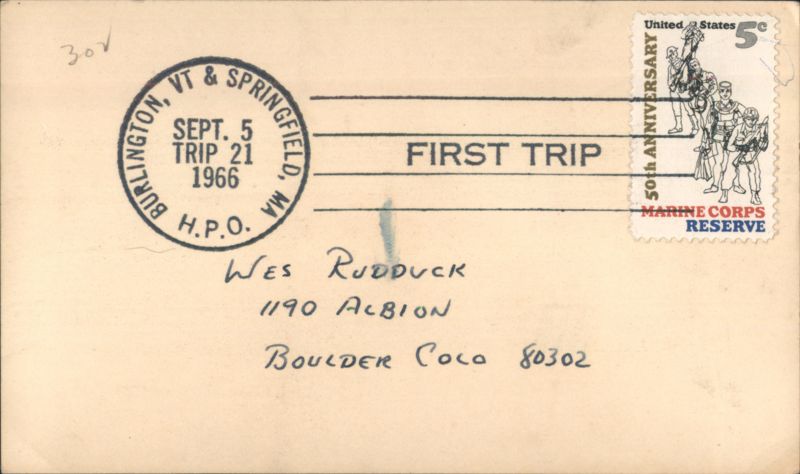 302
BURLINGTON, VT & SPRINGFIELD, MA
SEPT. 5
TRIP 21
1966
H.P.O.
FIRST TRIP
United States 5c
50th ANNIVERSARY
MARINE CORPS
RESERVE
WES RUDDUCK
1190 ALBION
BOULDER COLO 80302